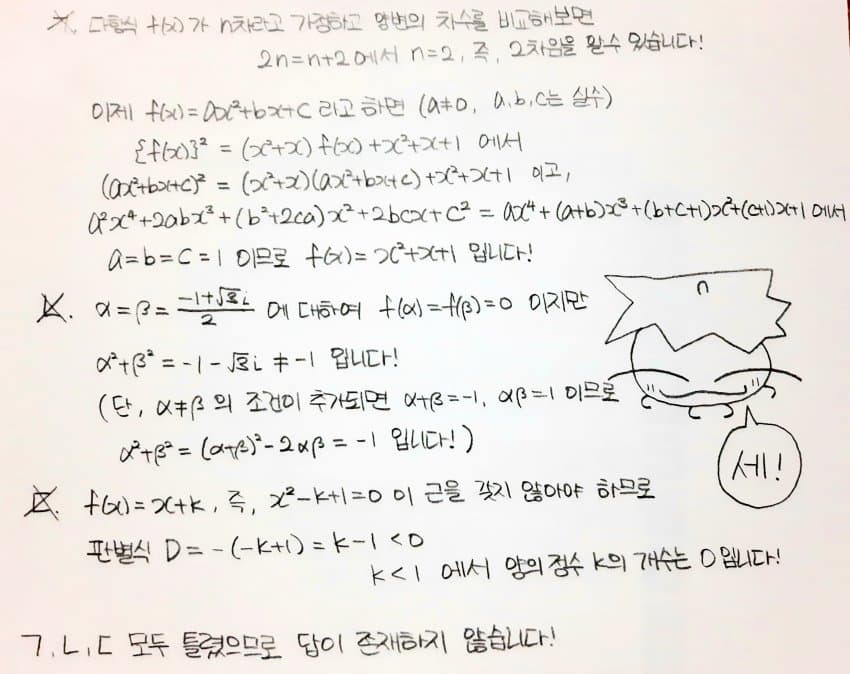 ㄱ. 다항식 f(x)가 n차라고 가정하고 양변의 차수를 비교해보면
2n=n+2에서 n=2, 즉, 2차임을 알 수 있습니다!
이제 f(x)=ax²+bx+c 라고 하면 (a≠0, a,b,c는 실수)
{f(x)}² = (x²+x)f(x)+x²+x+1 에서
(ax²+bx+c)² = (x²+x)(ax²+bx+c)+x²+x+1 이고,
a²x⁴+2abx³+(b²+2ca)x²+2bcx+c² = ax⁴+(a+b)x³+(b+c+1)x²+(c+1)x+1 에서
a=b=c=1 이므로 f(x)=x²+x+1 입니다!
ㄴ. α=β=(-1+√3i)/2 에 대하여 f(α)=f(β)=0 이지만
α²+β²=-1-√3i ≠ -1 입니다!
(단, α≠β의 조건이 추가되면 α+β=-1, αβ=1 이므로
α²+β²=(α+β)²-2αβ=-1 입니다!)
ㄷ. f(x)=x+k, 즉, x²-k+1=0 이 근을 갖지 않아야 하므로
판별식 D=-(-k+1)=k-1<0
k<1 에서 양의 정수 k의 개수는 0입니다!
ㄱ,ㄴ,ㄷ 모두 틀렸으므로 답이 존재하지 않습니다!
n
세!